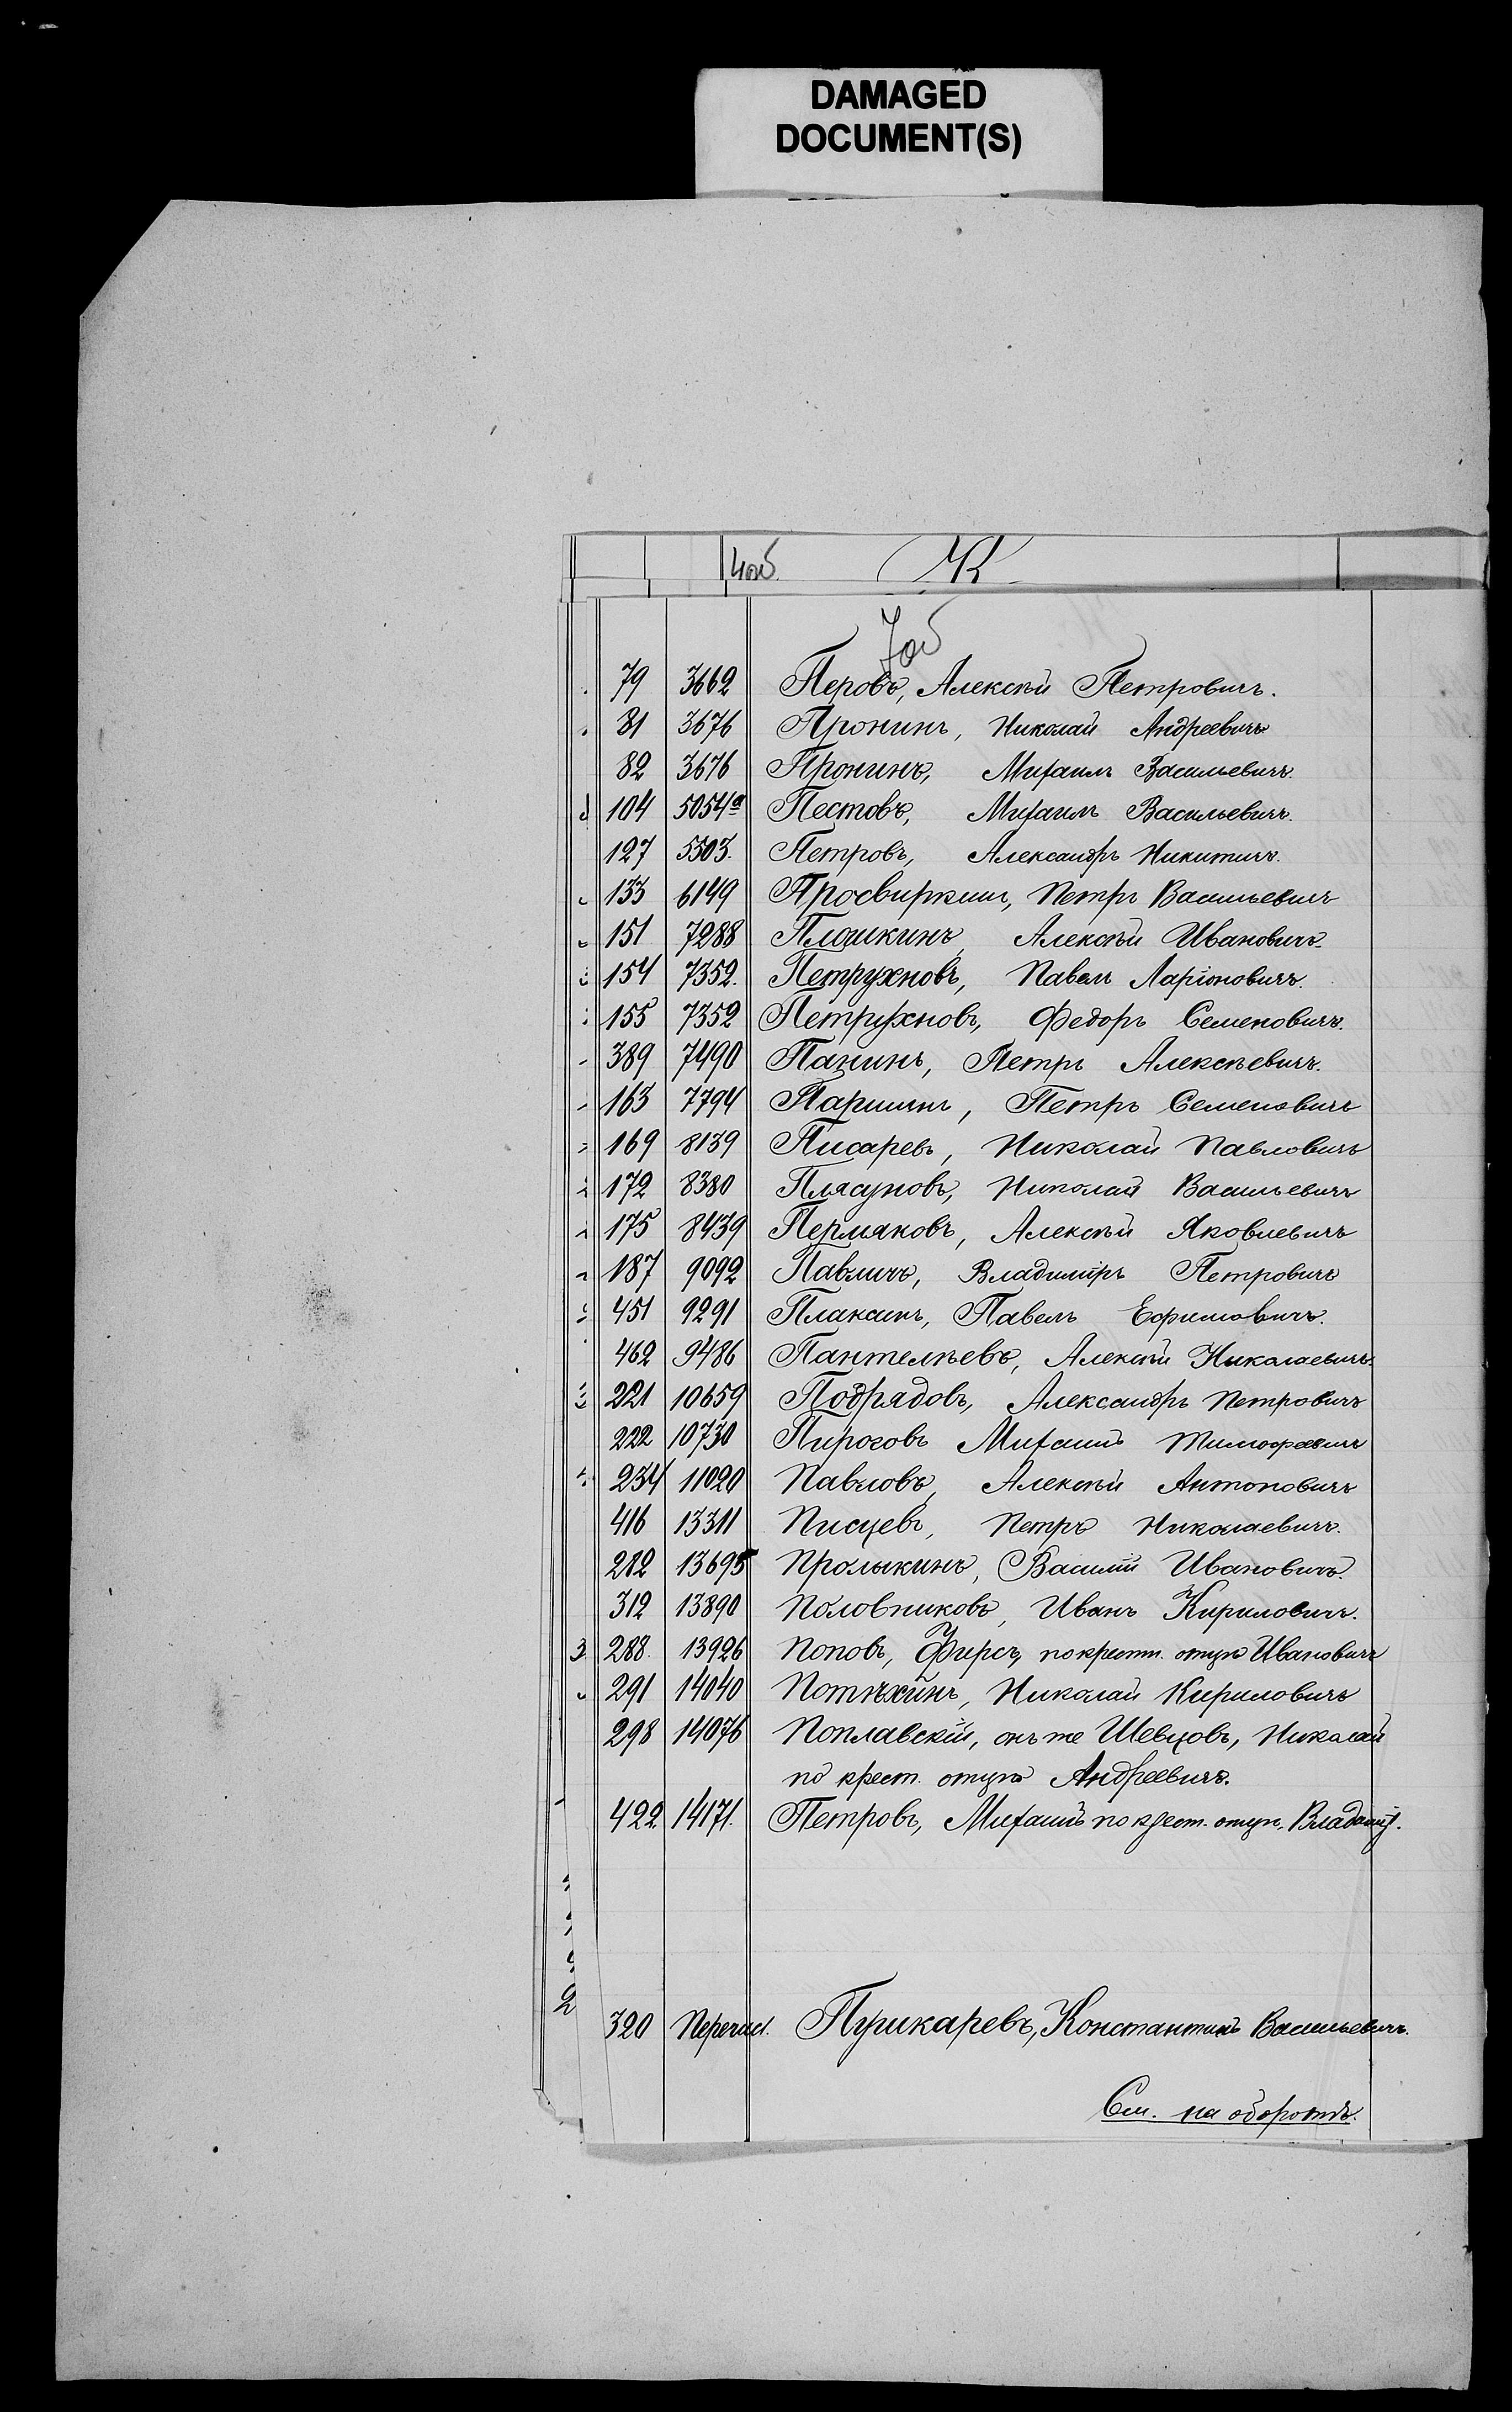 DAMAGED
DOCUMENT(S)
4об. К
7об
79 3662 Перовъ, Алексѣй Петровичъ.
81 3676 Пронинъ, Николай Андреевичъ
82 3676 Пронинъ, Михаилъ Васильевичъ.
104 5054а Пестовъ, Михаилъ Васильевичъ.
127 5503. Петровъ, Александръ Никитичъ.
133 6149 Просвиркин, Петръ Васильевичъ
151 7288 Плошкинъ, Алексѣй Ивановичъ.
154 7352. Петрухновъ, Павелъ Ларіоновичъ.
155 7352 Петрухновъ, Федоръ Семеновичъ.
389 7490 Панинъ, Петръ Алексѣевичъ.
163 7794 Паршинъ, Петръ Семеновичъ
169 8139 Писаревъ, Николай Павловичъ
172 8380 Плясуновъ, Николай Васильевичъ
175 8439 Пермяковъ, Алексѣй Яковлевичъ
187 9092 Павличъ, Владиміръ Петровичъ
451 9291 Плаксинъ, Павелъ Ефимовичъ.
462 9486 Пантелѣевъ, Алексѣй Николаевичъ.
221 10659 Подрядовъ, Александръ Петровичъ
222 10730 Пироговъ Михаилъ Тимофеевичъ
234 11020 Павловъ, Алексѣй Антоновичъ
416 13311 Писцевъ, Петръ Николаевичъ.
282 13695 Пролыкинъ, Василій Ивановичъ.
312 13890 Половниковъ, Иванъ Кириловичъ.
3 288. 13926 Поповъ, Фирсъ, по крестн. отцу Ивановичъ
291 14040 Потѣхинъ, Николай Кириловичъ
298 14076 Поплавскій, онъ же Шевцовъ, Николай
по крест. отцу Андреевичъ.
422. 14171. Петровъ, Михаилъ по крест. отцу. Владимір.
2
320 Перечисл. Пушкаревъ, Константинъ Васильевичъ.
См. на оборотѣ.